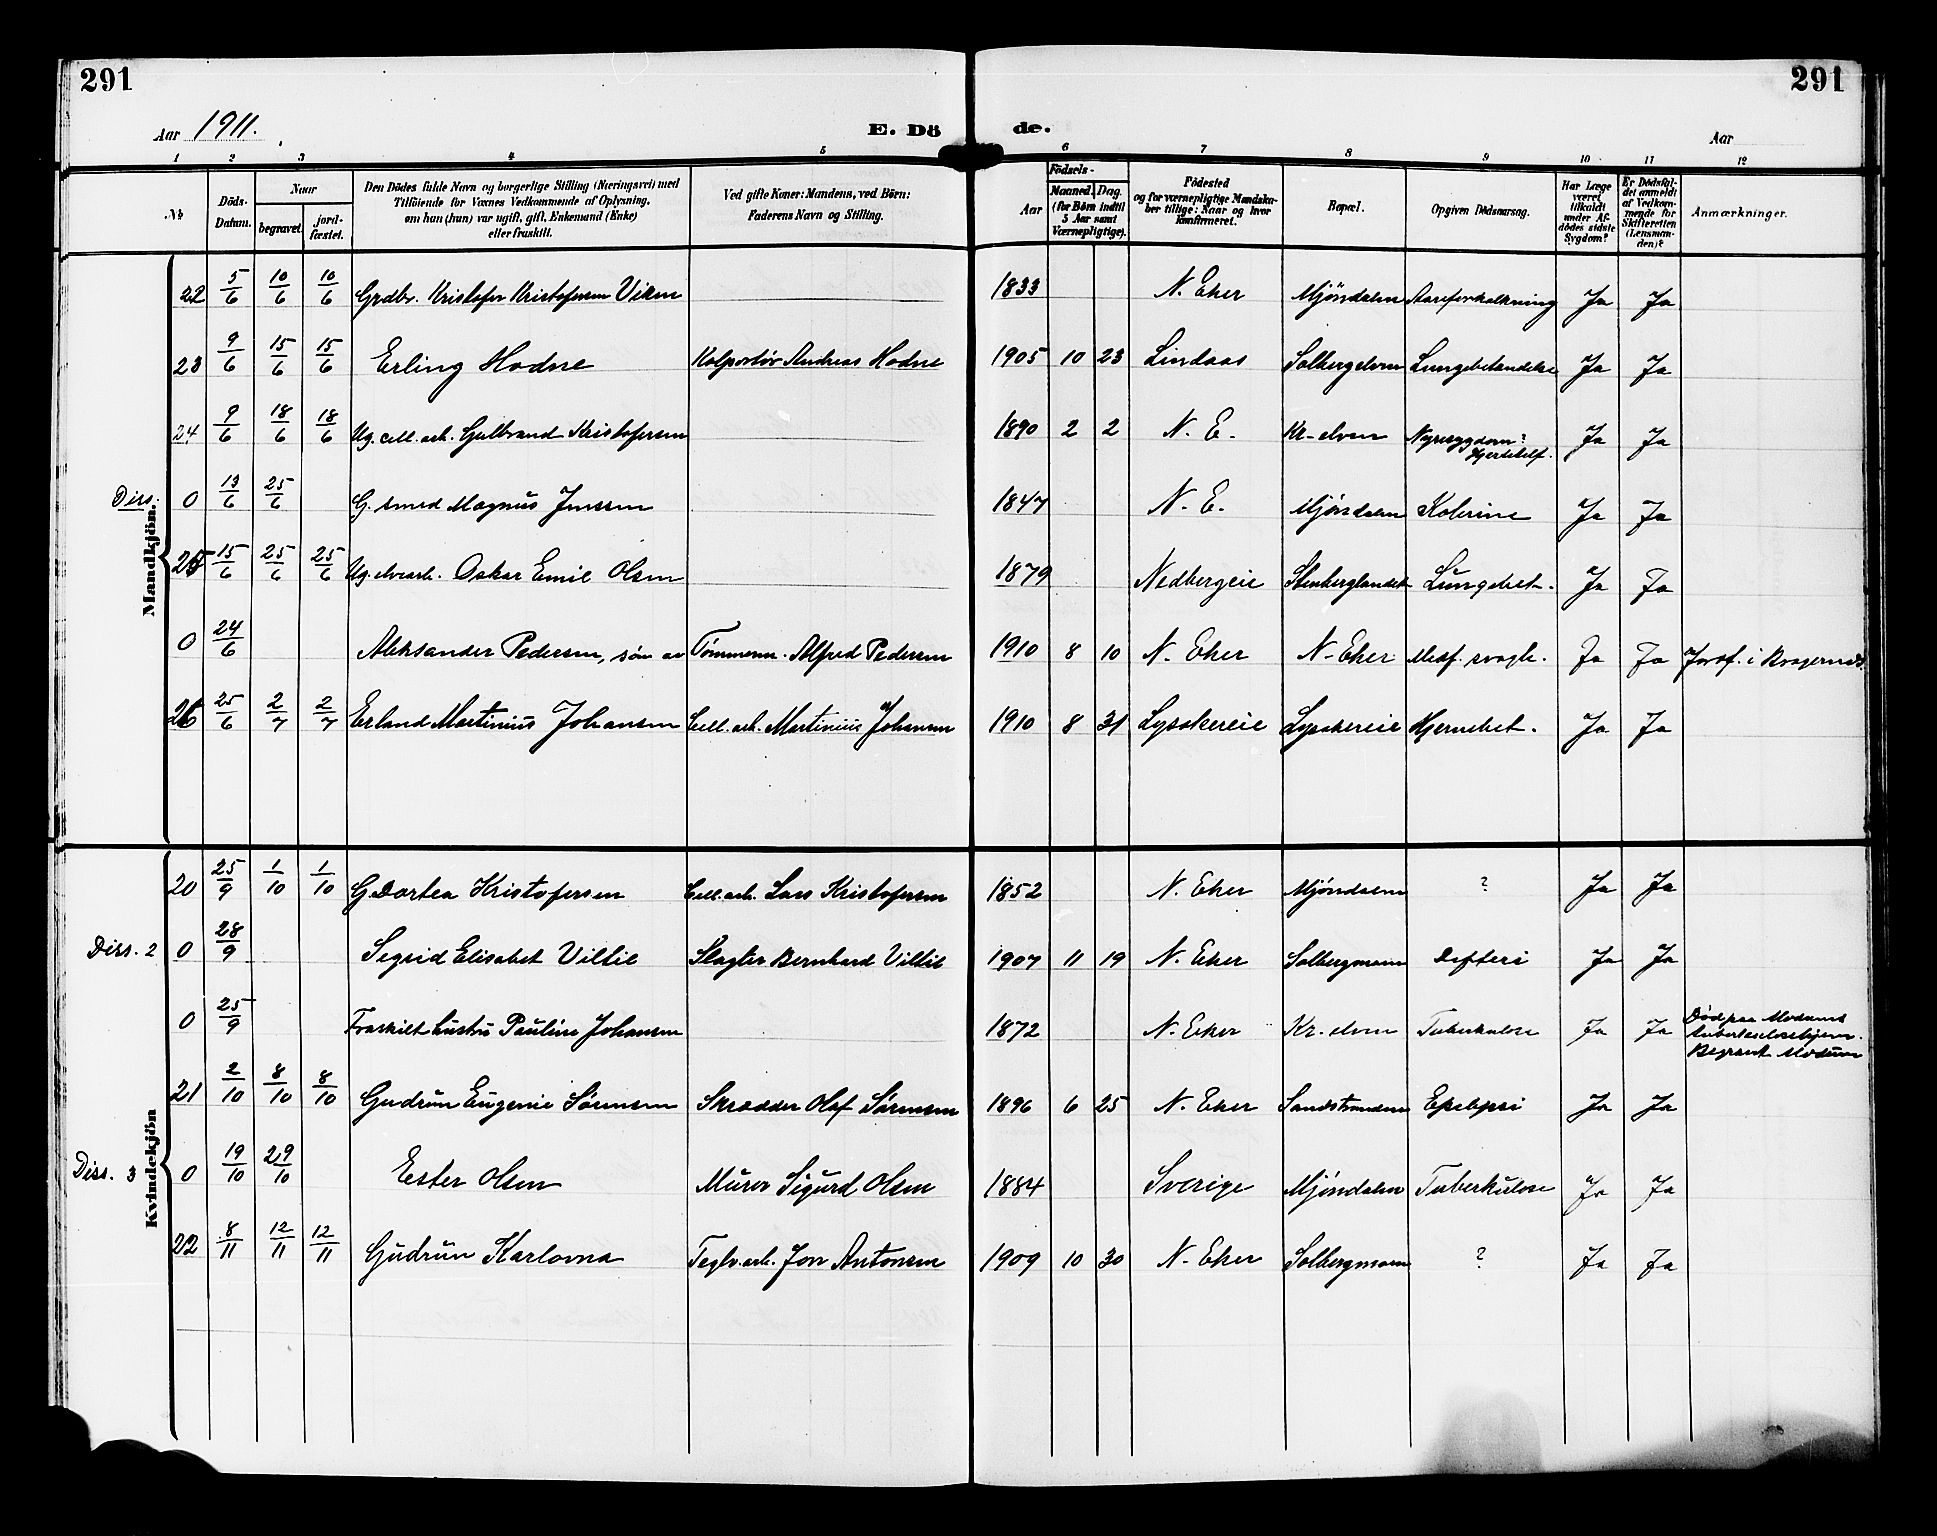 291
291
Aar 1911.
E. Dö
de.
Aar
1 2 3 4 5 6 7 8 9 10 11 12
№
Döds-Datum.
Naar
begravet.
jord-fæstet.
Den Dödes fulde Navn og borgerlige Stilling (Næringsvei) med
Tilföiende for Voxnes Vedkommende af Oplysning,
om han (hun) var ugift, gift, Enkemand (Enke)
eller fraskilt.
Ved gifte Koner: Mandens, ved Börn:
Faderens Navn og Stilling.
Födsels-
Aar
Maaned. Dag.
(for Börn indtil
5 Aar samt
Værnepligtige).
Födested
og for værnepligtige Mandska-
ber tillige: Naar og hvor
konfirmeret.
Bopæl.
Opgiven Dödsaarsag.
Har Læge
været
tilkaldt
under Af-
dödes sidste
Sygdom?
Er Dödsfal-
det anmeldt
af Vedkom-
mende for
Skifteretten
(Lensman-
den)?
Anmærkninger.
Mandkjön.
22 5/6 10/6 10/6 Grdbr. Kristofer Kristofersen Viken 1833 N. Eker Mjöndalen Aareforkalkning Ja Ja
23 9/6 15/6 15/6 Erling Hodne Kolportör Andreas Hodne 1905 10 23 Lindaas Solbergelven Lungebetændelse Ja Ja
24 9/6 18/6 18/6 Ug. cell. arb. Gulbrand Kristofersen 1890 2 2 N. E. Kr-elven Nyresygdom? Hjertefeil. Ja Ja
Diss. 0 13/6 25/6 G. smed Magnus Jenssen 1847 N. E. Mjöndalen Kolerine Ja Ja
25 15/6 25/6 25/6 Ug. elvearb. Oskar Emil Olsen 1879 Nedbergeie Stenberglandet Lungebet. Ja Ja
0 24/6 Aleksander Pedersen, sön av Tömmerm. Alfred Pedersen 1910 8 10 N. Eker N. Eker Medf. svagh. Ja Ja Jordf. i Bragernes.
26 25/6 2/7 2/7 Erland Martinius Johansen Cell. arb. Martinius Johansen 1910 8 31 Lysakereie Lysakereie Hjernebet. Ja Ja
Kvindekjön
20 25/9 1/10 1/10 G. Dortea Kristofersen Cell. arb. Lars Kristofersen 1852 N. Eker Mjöndalen ? Ja Ja
Diss. 2 0 28/9 Sigrid Elisabet Viltil Slagter Bernhard Viltil 1907 11 19 N. Eker Solbergmoen Difteri Ja Ja
0 25/9 Fraskilt hustru Pauline Johansen 1872 N. Eker Kr. elven Tuberkulose Ja Ja Död paa Modums
Tuberkulosehjem.
Begravet Modum
21 2/10 8/10 8/10 Gudrun Eugenie Sörensen Skrædder Olaf Sörensen 1896 6 25 N. Eker Sandstranden Epilepsi Ja Ja
Diss. 3 0 19/10 29/10 Ester Olsen Murer Sigurd Olsen 1884 Sverige Mjöndalen Tuberkulose Ja Ja
22 8/11 12/11 12/11 Gudrun Karlovna Teglv.arb. Jon Antonsen 1909 10 30 N. Eker Solbergmoen ? Ja Ja